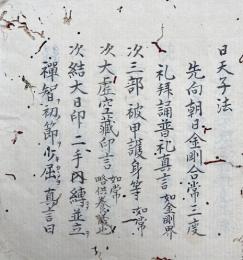 日天子法
先向朝日金剛合常三度
礼拜誦普礼真言如金剛界
次三部被甲護身等如常
次大虚空藏印言如常
次結大日印二手内縛並立
禪智初節少屈真言曰